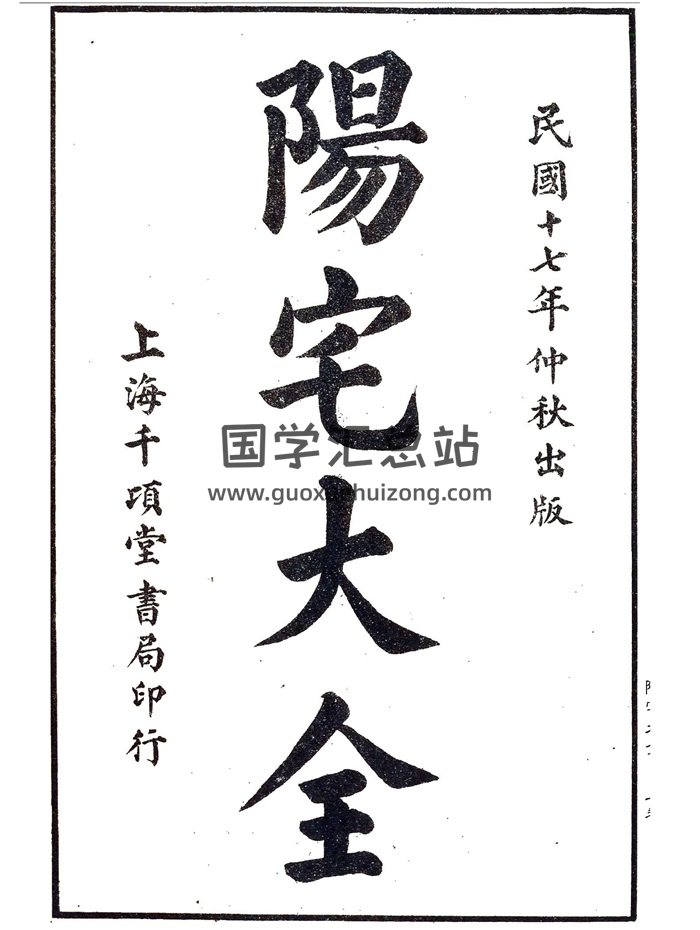 民國十七年仲秋出版
陽宅大全
上海千頃堂書局印行
国学汇总站
www.guoxuehuizong.com